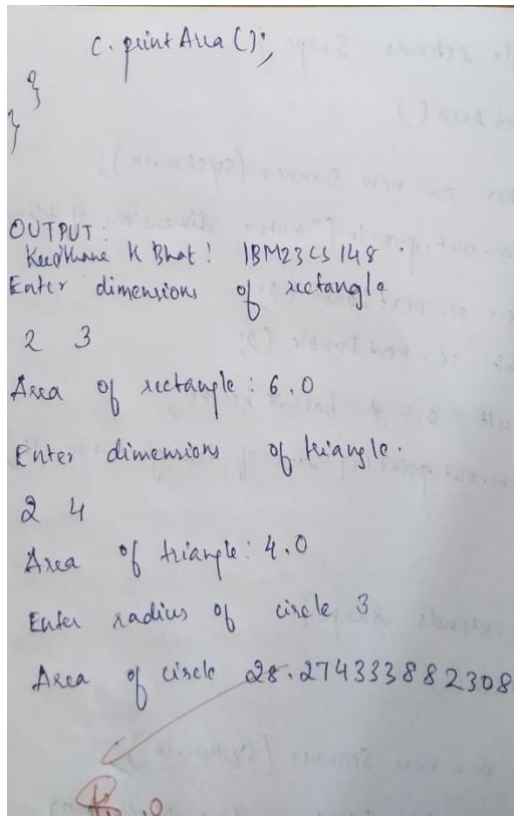 c. printArea();
}
}
OUTPUT:
K Bhat! 1BM23CS148.
Enter dimensions of rectangle
2 3
Area of rectangle: 6.0
Enter dimensions of triangle.
2 4
Area of triangle: 4.0
Enter radius of circle 3
Area of circle 28.274333882308